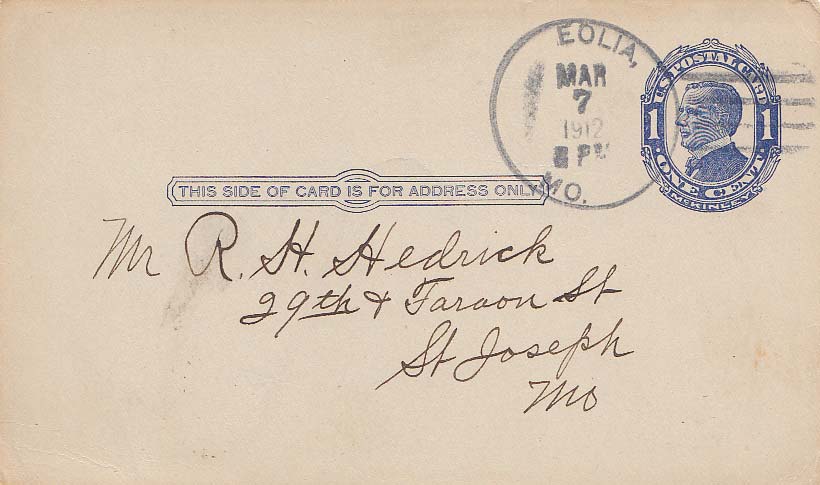 EOLIA,
MAR
7
1912
PM
MO.
U.S. POSTAL CARD
1 1
·ONE CENT·
McKINLEY
THIS SIDE OF CARD IS FOR ADDRESS ONLY
Mr R. H. Hedrick
29th & Faraon St
St Joseph
Mo